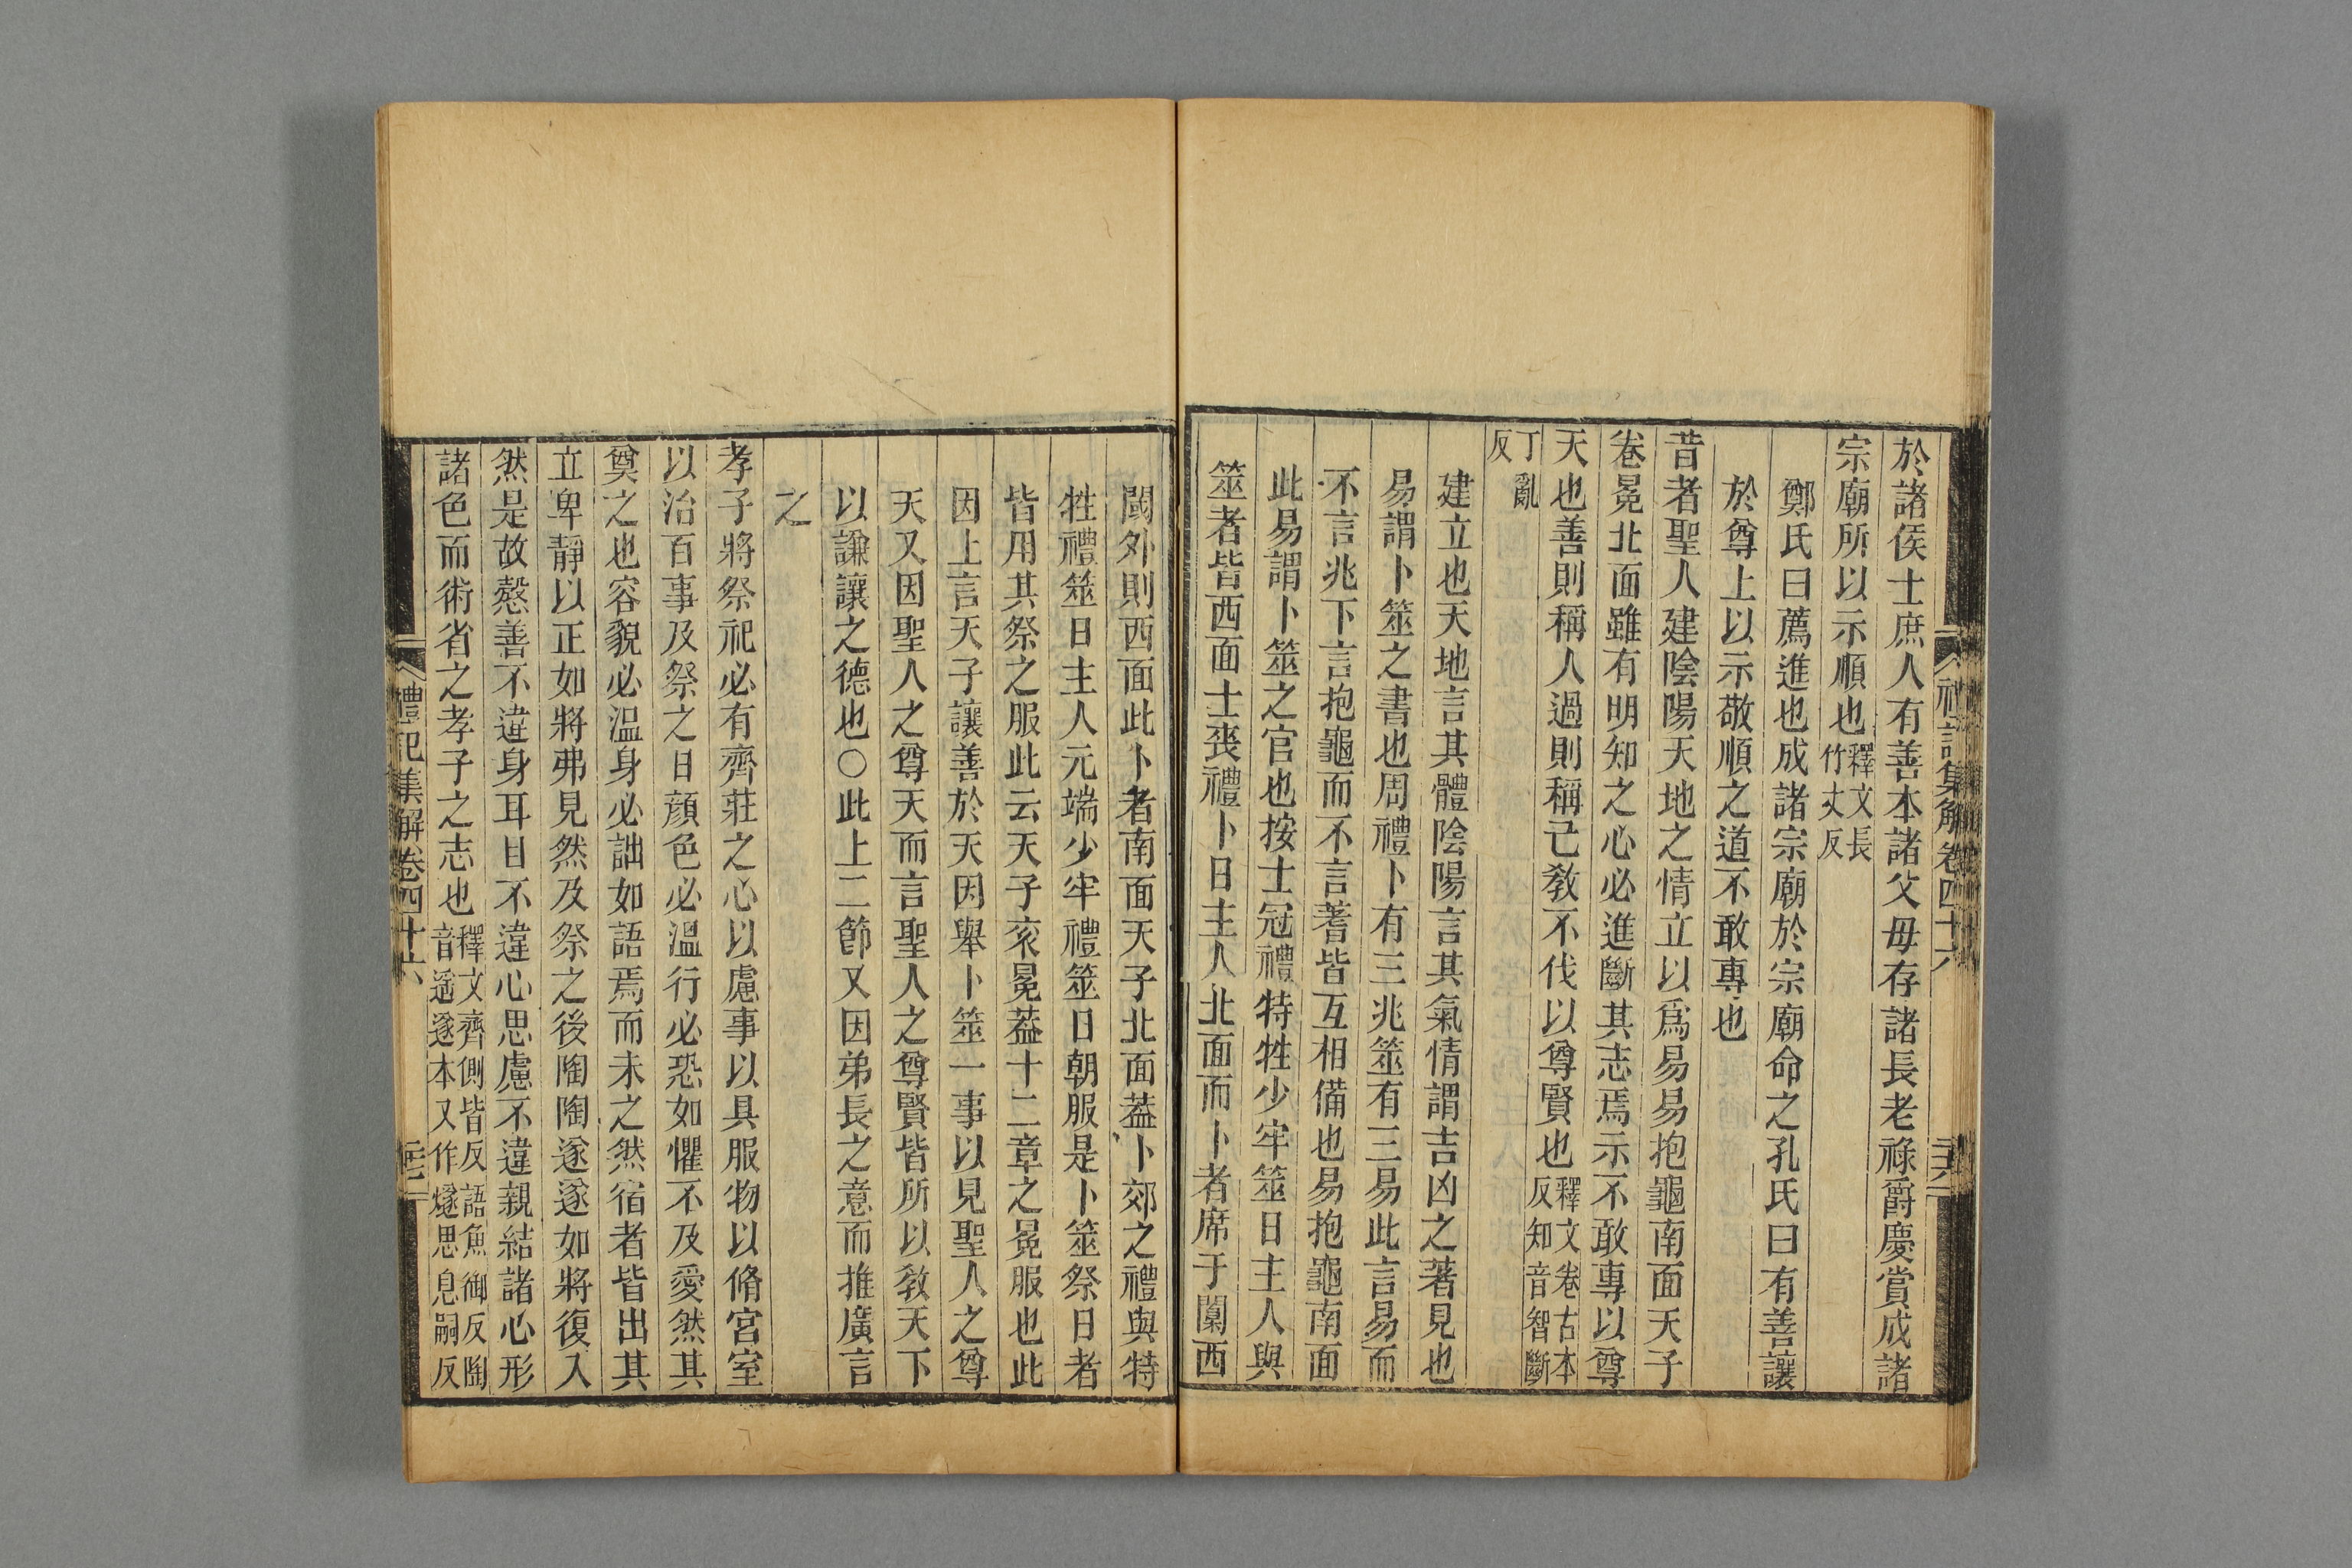 於諸侯士庶人有善本諸父母存諸長老祿爵慶賞成諸
宗廟所以示順也釋文長竹丈反
鄭氏曰薦進也成諸宗廟於宗廟命之孔氏曰有善讓
於尊上以示敬順之道不敢專也
昔者聖人建陰陽天地之情立以爲易易抱龜南面天子
卷冕北面雖有明知之心必進斷其志焉示不敢專以尊
天也善則稱人過則稱己敎不伐以尊賢也釋文卷古本反知音智斷
丁亂反
建立也天地言其體陰陽言其氣情謂吉凶之著見也
易謂卜筮之書也周禮卜有三兆筮有三易此言易而
不言兆下言抱龜而不言蓍皆互相備也易抱龜南面
此易謂卜筮之官也按士冠禮特牲少牢筮日主人與
筮者皆西面士喪禮卜日主人北面而卜者席于闑西
閾外則西面此卜者南面天子北面葢卜郊之禮與特
牲禮筮日主人元端少牢禮筮日朝服是卜筮祭日者
皆用其祭之服此云天子衮冕葢十二章之冕服也此
因上言天子讓善於天因舉卜筮一事以見聖人之尊
天又因聖人之尊天而言聖人之尊賢皆所以敎天下
以謙讓之德也○此上二節又因弟長之意而推廣言
之
孝子將祭祀必有齊莊之心以慮事以具服物以脩宮室
以治百事及祭之日顏色必溫行必恐如懼不及愛然其
奠之也容貌必溫身必詘如語焉而未之然宿者皆出其
立卑靜以正如將弗見然及祭之後陶陶遂遂如將復入
然是故慤善不違身耳目不違心思慮不違親結諸心形
諸色而術省之孝子之志也釋文齊側皆反語魚御反陶音遥遂本又作燧思息嗣反
禮記集解卷四十六